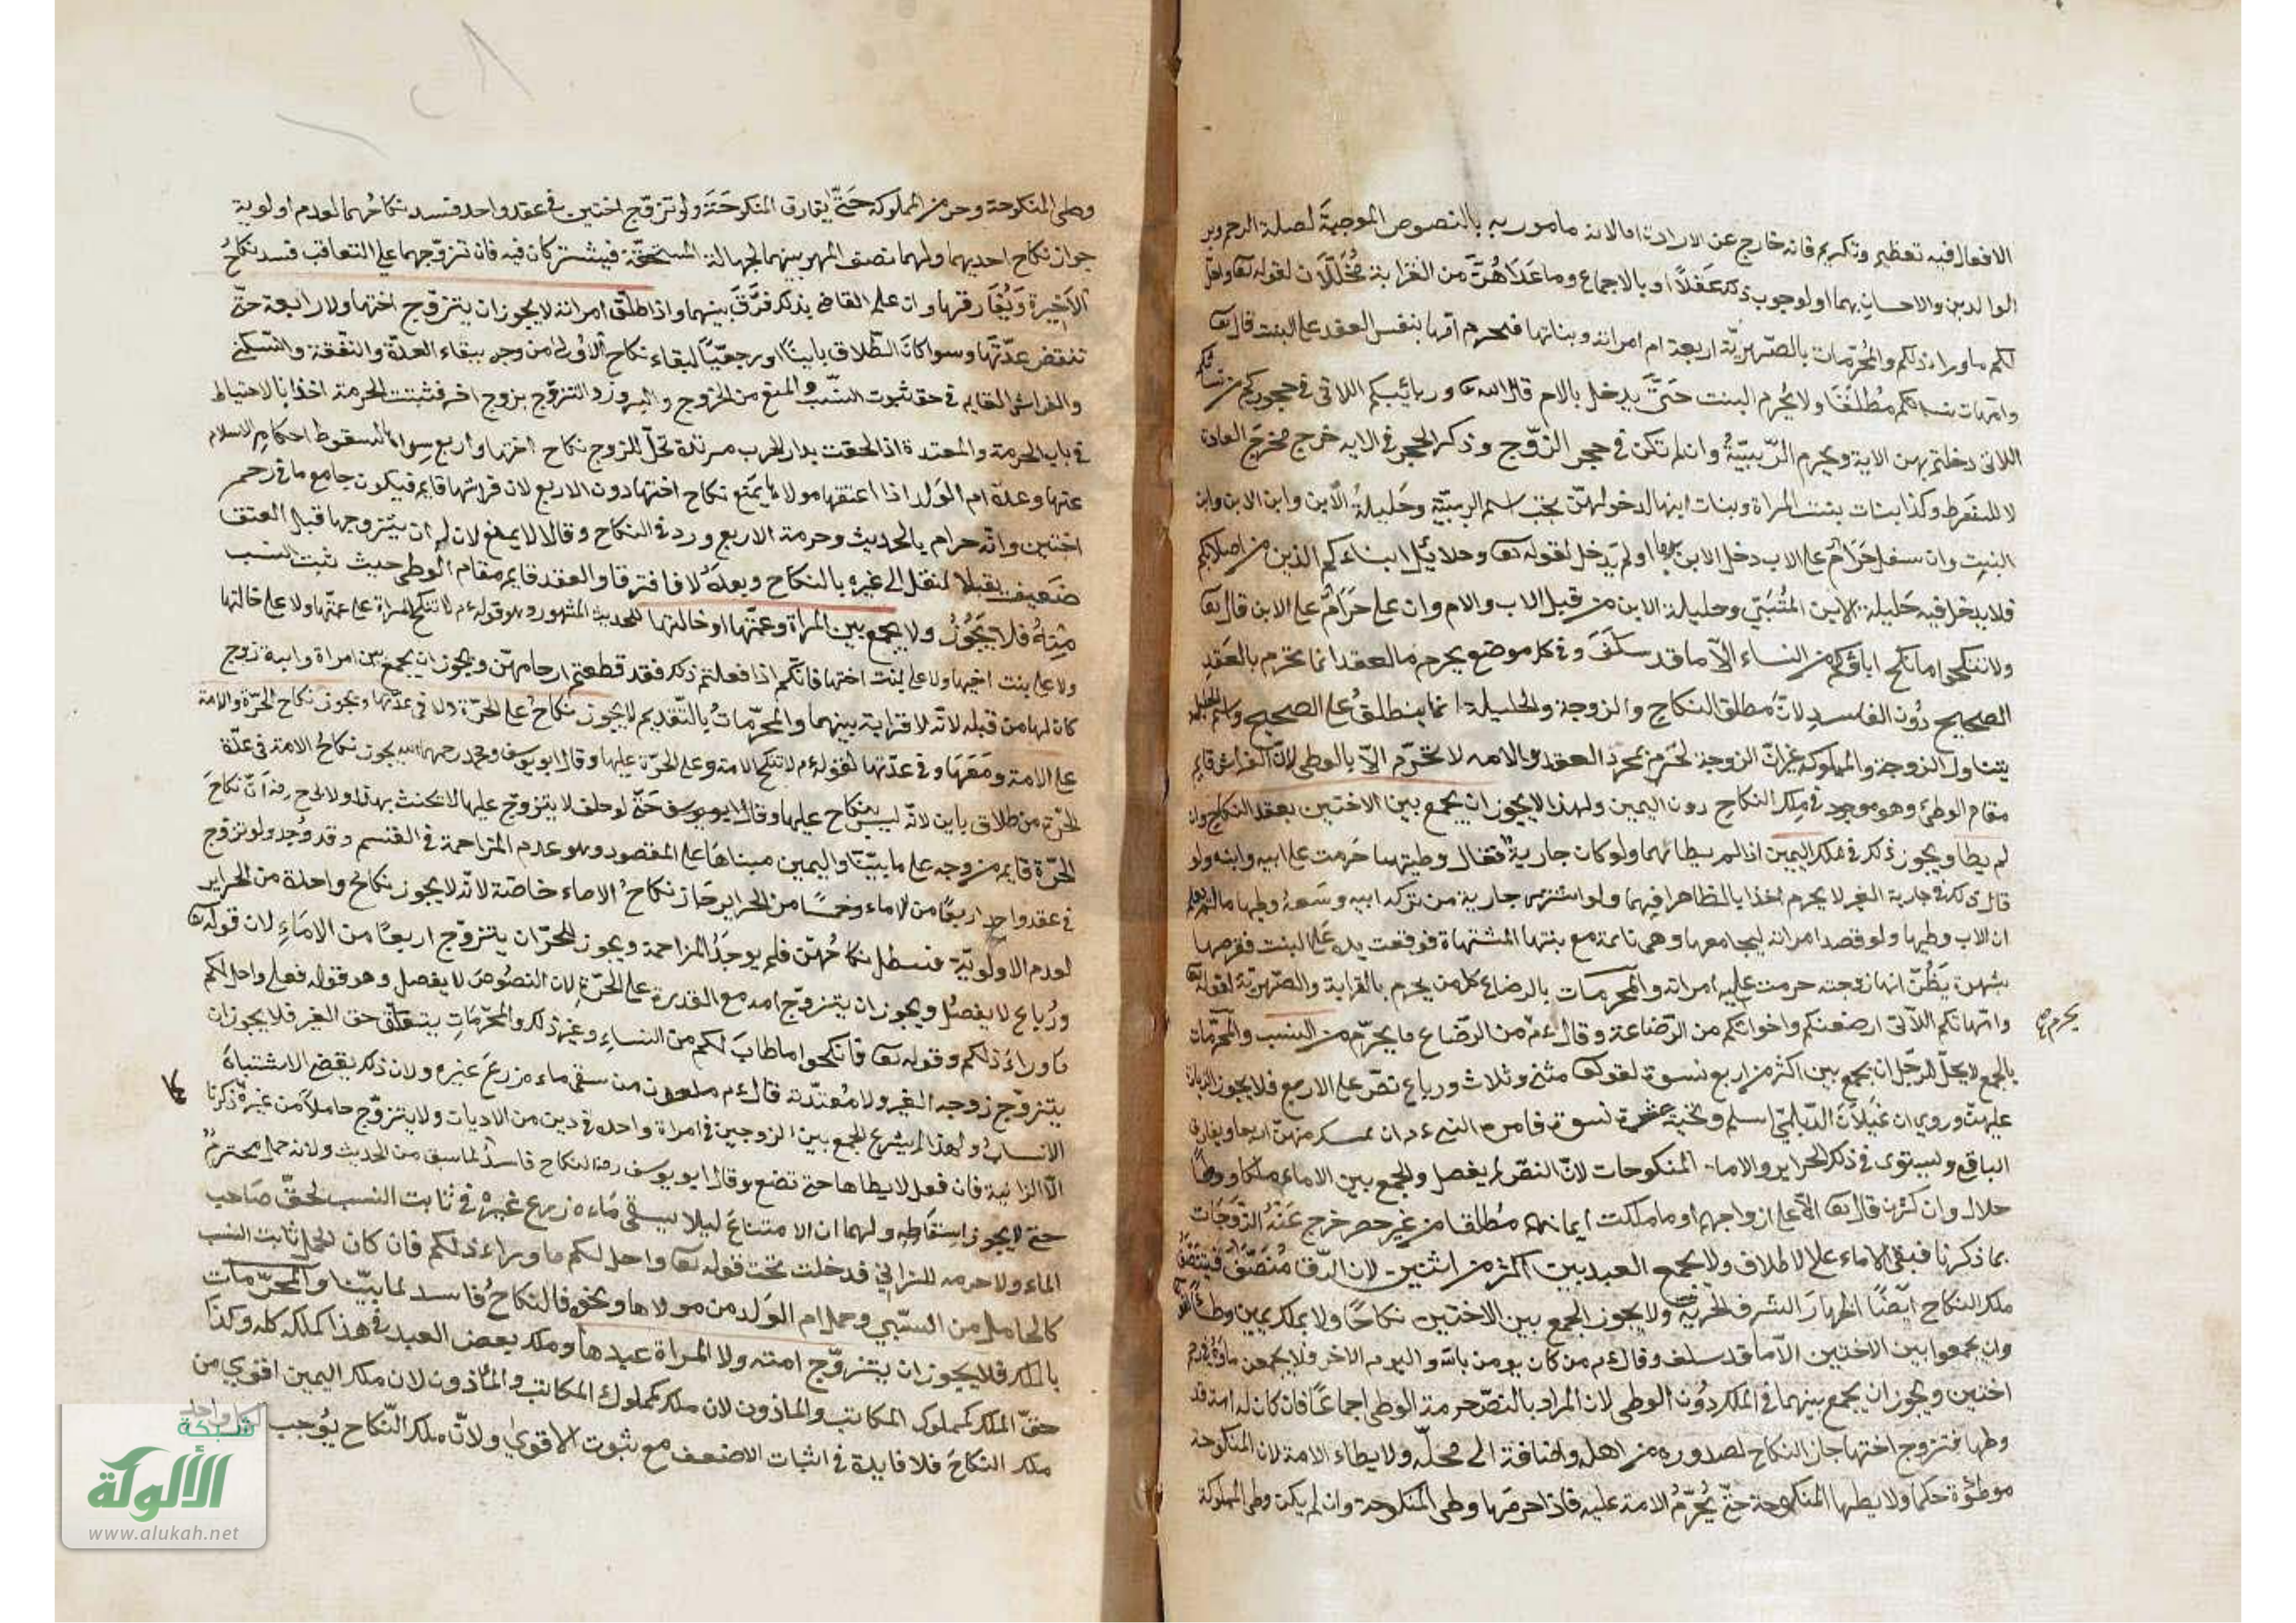 الافعال فيه تعظيم وتكريم فانه خارج عن الارادة اما لانه مامور به بالنصوص الموجبة لصلة الرحم وبر
الوالدين والاحسان بهما او لوجوب ذلك عقلا او بالاجماع وما عداهن من القرابة محللات لقوله تعا واحل
لكم ما وراء ذلكم والمحرمات بالصهرية اربعة ام امراته وبناتها فتحرم امها بنفس العقد على البنت قال تعا
وامهات نسائكم مطلقا ولا يحرم البنت حتى يدخل بالام قال الله تعا وربائبكم اللاتي في حجوركم من نسائكم
اللاتي دخلتم بهن الاية ويحرم الربيبة وان لم تكن في حجر الزوج وذكر الحجر في الاية خرج مخرج العادة
لا للشرط وكذا بنات بنت المراة وبنات ابنها لدخولهن تحت اسم الربيبة وحليلة الابن وابن الابن وابن
البنت وان سفل حرام على الاب دخل الابن بها او لم يدخل لقوله تعا وحلائل ابناءكم الذين من اصلابكم
فلا يدخل فيه حليلة الابن المتبنى وحليلة الابن من قبل الاب والام وان علا حرام على الابن قال تعا
ولا تنكحوا ما نكح اباؤكم من النساء الا ما قد سلف وفي كل موضع يحرم بالعقد انما تحرم بالعقد
الصحيح دون الفاسد لان مطلق النكاح والزوجة والحليلة انما ينطلق على الصحيح واسم الحليلة
يتناول الزوجة والمملوكة غير ان الزوجة تحرم بمجرد العقد والامة لا تحرم الا بالوطى لان الفراش قايم
مقام الوطئ وهو موجود في ملك النكاح دون اليمين ولهذا لا يجوز ان يجمع بين الاختين بعقد النكاح وان
لم يطا ويجوز ذلك في ملك اليمين اذا لم يطائهما ولو كان جارية فقال وطيتها حرمت على ابيه وابنه ولو
قال ذلك في جارية الغير لا يحرم اخذا بالظاهر فيهما ولو اشترى جارية من تركة ابيه وسعه وطيها ما لم يعلم
ان الاب وطيها ولو قصد امراته ليجامعها وهي نائمة مع بنتها المشتهاة فوقعت يده على البنت فقرصها
بشهوة يظن انها زوجته حرمت عليه امراته والمحرمات بالرضاع كل من يحرم بالقرابة والصهرية لقوله تعا
وامهاتكم اللاتي ارضعنكم واخواتكم من الرضاعة وقال ءم يحرم من الرضاع ما يحرم من النسب والمحرمات
يحرم
بالجمع لا يحل للرجل ان يجمع بين اكثر من اربع نسوة لقوله تعا مثنى وثلاث ورباع نص على الاربع فلا يجوز الزيادة
عليهن وروي ان غيلان الديلمي اسلم وتحته عشرة نسوة فامره النبي ءم ان يمسك منهن اربعا ويفارق
الباقي ويستوى في ذلك الحراير والاماء المنكوحات لان النص لم يفصل والجمع بين الاماء ملكا ووطئا
حلال وان كثرن قال تعا الا على ازواجهم او ما ملكت ايمانهم مطلقا من غير حصر خرج عنه الزوجات
بما ذكرنا فبقى الاماء على الاطلاق ولا يجمع العبد بين اكثر من اثنتين لان الرق منصف فيتنصف
ملك النكاح ايضا اظهارا لشرف الحرية ولا يجوز الجمع بين الاختين نكاحا ولا بملك يمين وطئا لقوله
وان يجمعوا بين الاختين الا ما قد سلف وقال ءم من كان يومن بالله واليوم الاخر فلا يجمعن ماؤه في رحم
اختين ويجوز ان يجمع بينهما في الملك دون الوطى لان المراد بالنص حرمة الوطى اجماعا فان كان له امة قد
وطيها فتزوج اختها جاز النكاح لصدوره من اهله واضافة الى محله ولا يطاء الامة لان المنكوحة
موطوة حكما ولا يطا المنكوحة حتى يحرم الامة عليه فاذا حرمها وطى المنكوحة وان لم يكن وطى المملوكة
وطى المنكوحة وحرمت المملوكة حتى يفارق المنكوحة ولو تزوج اختين في عقد واحد فسد نكاحهما لعدم اولوية
جواز نكاح احديهما ولهما نصف المهر بينهما لجهالة المستحقة فيشتركان فيه فان تزوجهما على التعاقب فسد نكاح
الاخيرة ويفارقها وان علم القاضي بذلك فرق بينهما واذا طلق امراته لا يجوز ان يتزوج اختها ولا رابعة حتى
تنقض عدتها وسوا كان الطلاق باينا او رجعيا لبقاء نكاح الاولى من وجه ببقاء العدة والنفقة والسكنى
والفراش القايم في حق ثبوت النسب والمنع من الخروج والبروز والتزوج بزوج اخر فثبتت الحرمة اخذا بالاحتياط
في باب الحرمة والمعتدة اذا لحقت بدار الحرب مرتدة تحل للزوج نكاح اختها واربع سواها لسقوط احكام الاسلام
عنها وعدة ام الولد اذا اعتقها مولاها يمنع نكاح اختها دون الاربع لان فراشها قايم فيكون جامع ما في رحم
اختين وانه حرام بالحديث وحرمة الاربع ورد في النكاح وقالا لا يمنع لان له ان يتزوجها قبل العتق
ضعيف يقبل النقل الى غيره بالنكاح وبعده لا فافترقا والعقد قايم مقام الوطى حيث ثبت النسب
منه فلا يجوز ولا يجمع بين المراة وعمتها او خالتها للحديث المشهور وهو قوله ءم لا تنكح المراة على عمتها ولا على خالتها
ولا على بنت اخيها ولا على بنت اختها فانكم اذا فعلتم ذلك فقد قطعتم ارحامهن ويجوز ان يجمع بين امراة وابنة زوج
كان لها من قبله لانه لا قرابة بينهما والمحرمات بالتقديم لا يجوز نكاح على الحرة ولا في عدتها ويجوز نكاح الحرة والامة
على الامة ومعها وفي عدتها لقوله ءم لا تنكح الامة وعلى الحرة عليها وقال ابو يوسف ومحمد رحمهما الله يجوز نكاح الامة في عدة
الحرة من طلاق باين لانه ليس بنكاح عليها وقال ابو يوسف حتى لو حلف لا يتزوج عليها لا تحنث بهذا ولابي ح رضه ان نكاح
الحرة قايم من وجه على ما بينا واليمين مبناها على المقصود وهو عدم المزاحمة في القسم وقد وجد ولو تزوج
في عقد واحد اربعا من الاماء وخمسا من الحراير جاز نكاح الاماء خاصة لانه لا يجوز نكاح واحدة من الحراير
لعدم الاولوية فبطل نكاحهن فلم يوجد المزاحمة ويجوز للحر ان يتزوج اربعا من الاماء لان قوله تعا
ورباع لا يفصل ويجوز ان يتزوج امة مع القدرة على الحرة لان النصوص لا يفصل وهو قوله فعلى واحل لكم
ما وراء ذلكم وقوله تعا فانكحوا ما طاب لكم من النساء وغير ذلك والمحرمات بتعلق حق الغير فلا يجوز ان
يتزوج زوجه الغير ولا معتدته قال ءم ملعون من سقى ماءه زرع غيره ولان ذلك يفضي الاشتباه
الانساب ولهذا لم يشرع الجمع بين الزوجين في امراة واحدة في دين من الاديان ولا يتزوج حاملا من غيره ذكرنا
الا الزانية فان فعل لا يطاها حتى تضع وقال ابو يوسف رضه النكاح فاسد لما سبق من الحديث ولانه حمل محترم
حتى لا يجوز اسقاطه ولهما ان الامتناع ليلا يسقى ماءه زرع غيره في ثابت النسب لحق صاحب
الماء ولا حرمه للزاني فدخلت تحت قوله تعا واحل لكم ما وراء ذلكم فان كان الحمل ثابت النسب
كالحامل من السبي وحمل ام الولد من مولاها ونحوه فالنكاح فاسد لما بينا والمحرمات
بالملك فلا يجوز ان يتزوج امته ولا المراة عبدها وملك بعض العبد في هذا كملك كله وكذا
حق الملك كمملوك المكاتب والماذون لان ملك كمملوك المكاتب والماذون لان ملك اليمين اقوى من
ملك النكاح فلا فايدة في اثبات الاضعف مع ثبوت الاقوى ولان ملك النكاح يوجب
شبكة
الألوكة
www.alukah.net